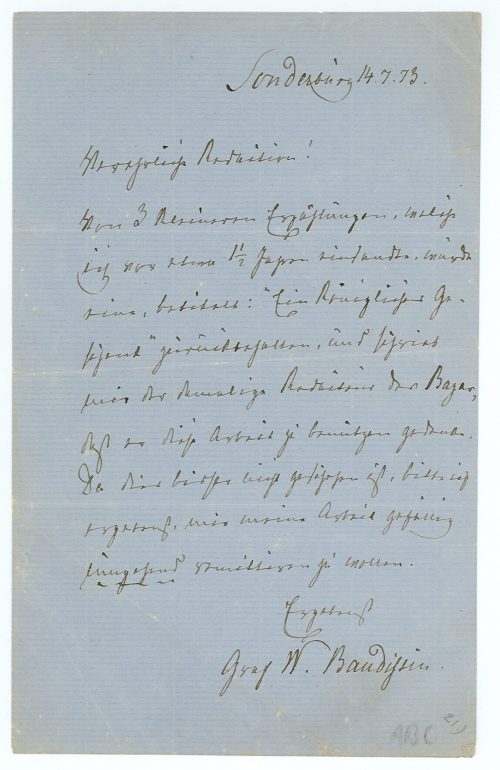 Sonderburg 14.7.73.
Verehrliche Redaction!
Von 3 kleineren Erzählungen, welche
ich vor etwa 1½ Jahren einsandte, wurde
eine, betitelt: "Ein Königliches Ge-
schenk" zurückbehalten, und schrieb
mir der damalige Redacteur des Bazar,
daß er diese Arbeit zu benützen gedenke.
Da dies bisher nicht geschehen ist, bitte ich
ergebenst, mir meine Arbeit gefällig
umgehend remittiren zu wollen.
Ergebenst
Graf W. Baudissin.
21)